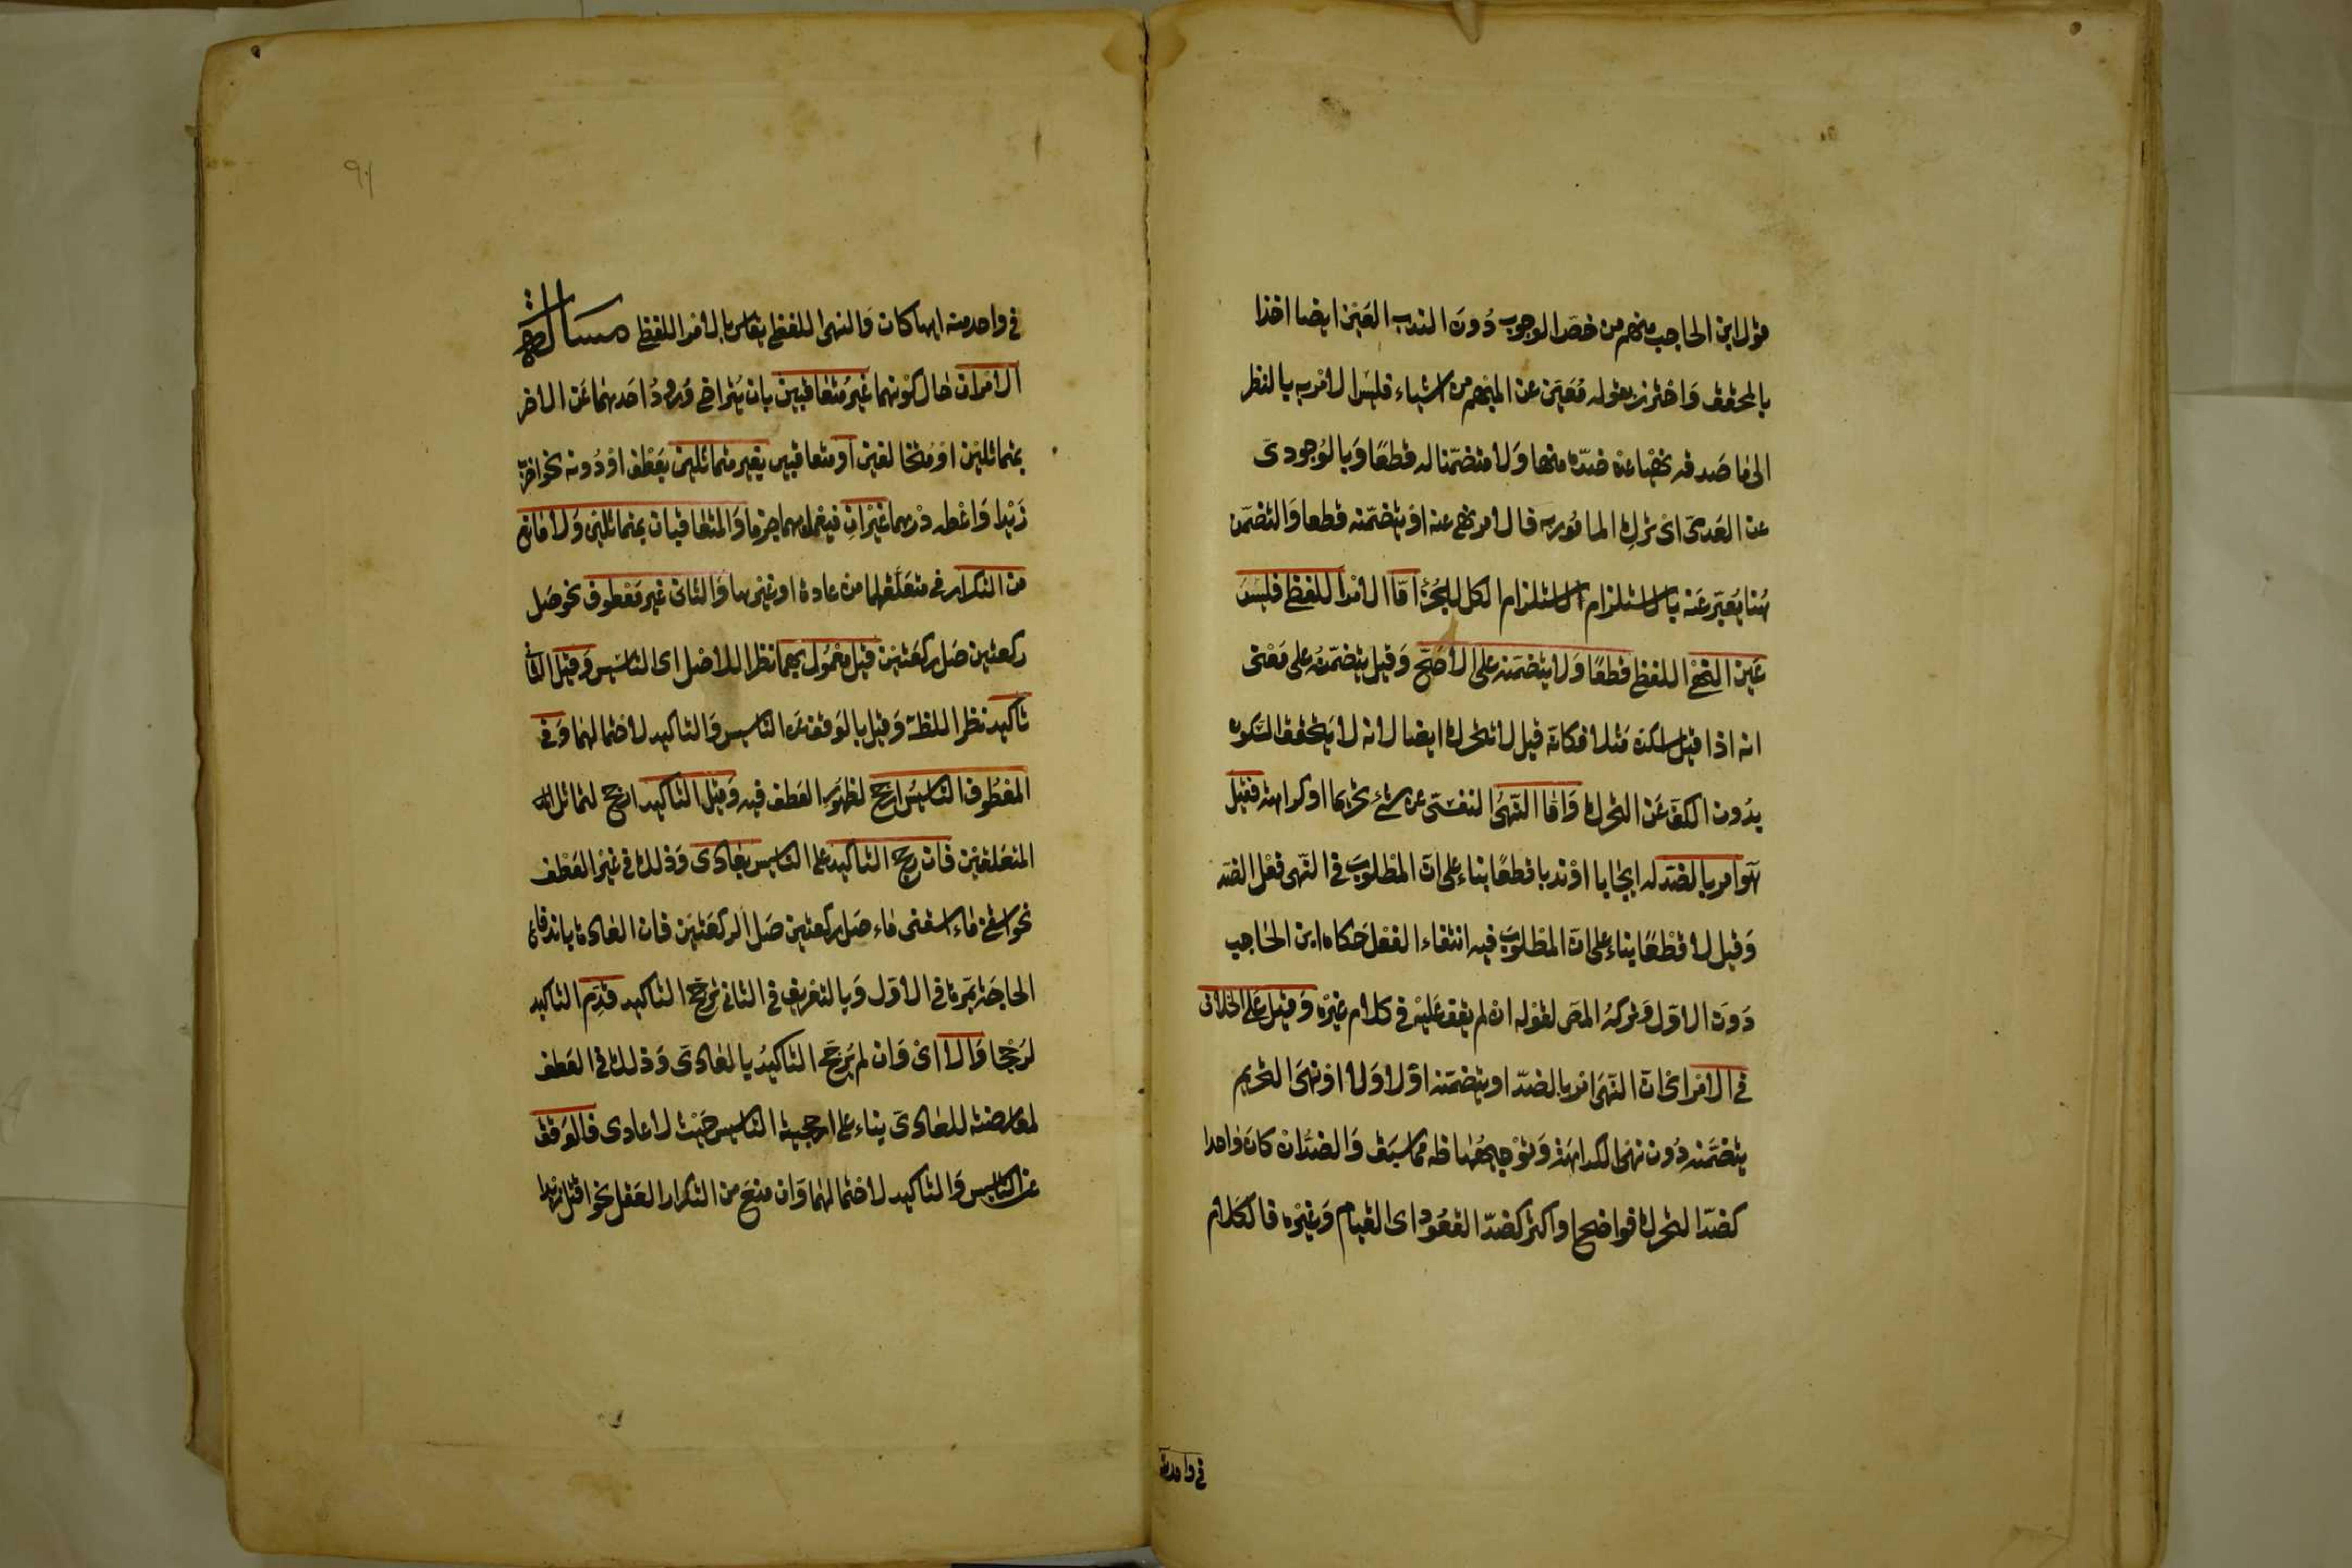 قول ابن الحاجب منهم من خص الوجوب دون الندب العين ايضا اخذا
بالمحقق واحترز بقوله معين عن المبهم من اشياء فليس الامر به بالنظر
الى ما صدقه نهيا عن ضده منها ولا متضمنا له قطعا وبالوجودى
عن العدمى اى ترك المامور به فالامر نهى عنه او يتضمنه قطعا والتضمن
هنا يعبر عنه بالاستلزام لاستلزام الكل للجزء اما الامر اللفظى فليس
عين النهى اللفظى قطعا ولا يتضمنه على الاصح وقيل يتضمنه على معنى
انه اذا قيل اسكن مثلا فكانه قيل لا تتحرك ايضا لانه لا يتحقق السكون
بدون الكف عن التحرك واما النهى النفسى عن شئ تحريما او كراهة فقيل
هو امر بالضد له ايجابا او ندبا قطعا بناء على ان المطلوب فى النهى فعل الضد
وقيل لا قطعا بناء على ان المطلوب فيه انتفاء الفعل حكاه ابن الحاجب
دون الاول وتركه المص لقوله انه لم يقف عليه فى كلام غيره وقيل على الخلاف
فى الامر اى ان النهى امر بالضد او يتضمنه اولا ولا او نهى التحريم
يتضمنه دون نهى الكراهة وتوجيهها ظه مما سبق والضد ان كان واحدا
كضد التحرك فواضح او اكثر كضد القعود اى القيام وغيره فالكلام
فى واحد منه
فى واحد منه ايها كان والنهى اللفظى يقاس بالامر اللفظى مسالة
الامران حال كونهما غير متعاقبين بان يتراخى ورود احدهما عن الاخر
بمتماثلين او متخالفين او متعاقبين بغير متماثلين بعطف او دونه نحو اضرب
زيدا واعطه درهما غيران فيعمل بهما جزما والمتعاقبان بمتماثلين ولا مانع
من التكرار فى متعلقهما من عادة او غيرها والثانى غير معطوف نحو صل
ركعتين صل ركعتين قيل معمول بهما نظرا للاصل اى التاسيس وقيل الثانى
تاكيد نظرا للظ وقيل بالوقف عن التاسيس والتاكيد لاحتمالهما وفى
المعطوف التاسيس ارجح لظهور العطف فيه وقيل التاكيد ارجح لتماثل
المتعلقين فان رجح التاكيد على التاسيس بعادى وذلك فى غير العطف
نحو اسقنى ماء اسقنى ماء صل ركعتين صل الركعتين فان العادة باندفاع
الحاجة بمرة فى الاول وبالتعريف فى الثانى ترجح التاكيد قدم التاكيد
لرجحا والا اى وان لم يرجح التاكيد بالعادى وذلك فى العطف
لمعارضته للعادى بناء على ارجحية التاسيس حيث لا عادى فالوقف
عن التاسيس والتاكيد لاحتمالهما وان منع من التكرار العقل نحو اقتل زيدا